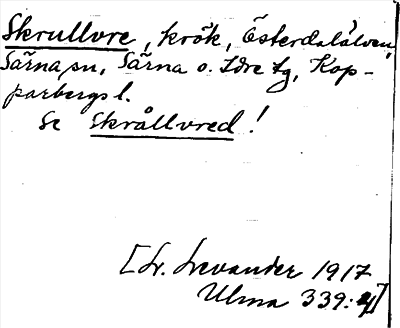 Skrullvre, krök, Österdalälven,
Särna sn, Särna o. Idre tg, Kop-
parbergs l.
Se Skrållvred!
[L. Levander 1917
Ulma 339:4]